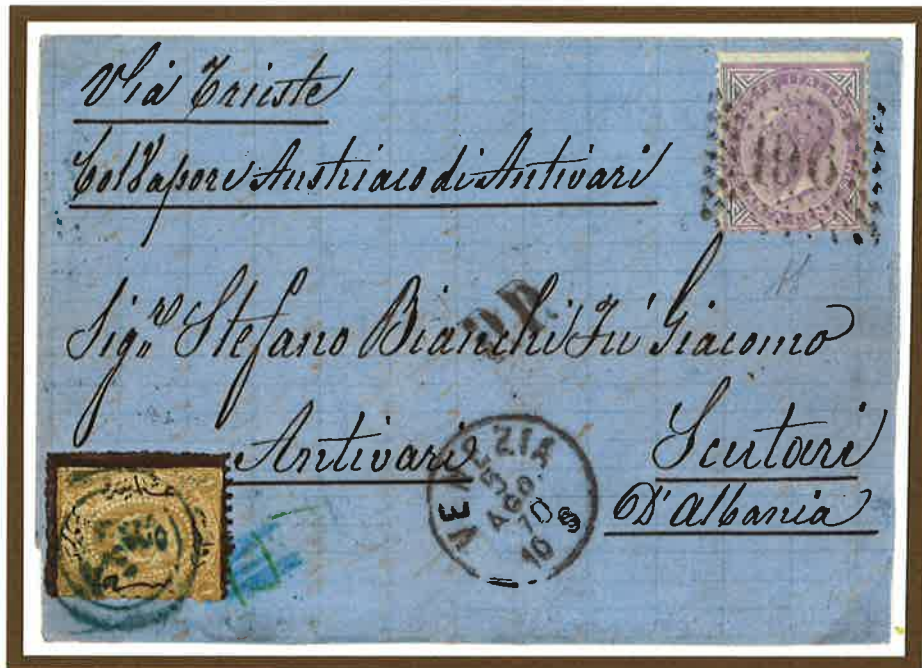 Via Trieste
Col Vapore Austriaco di Antivari
196
P.D.
Sig.re Stefano Bianchi Fu Giacomo
Antivari Scutari
D'Albania
VENEZIA
5
AGO
70
10 S